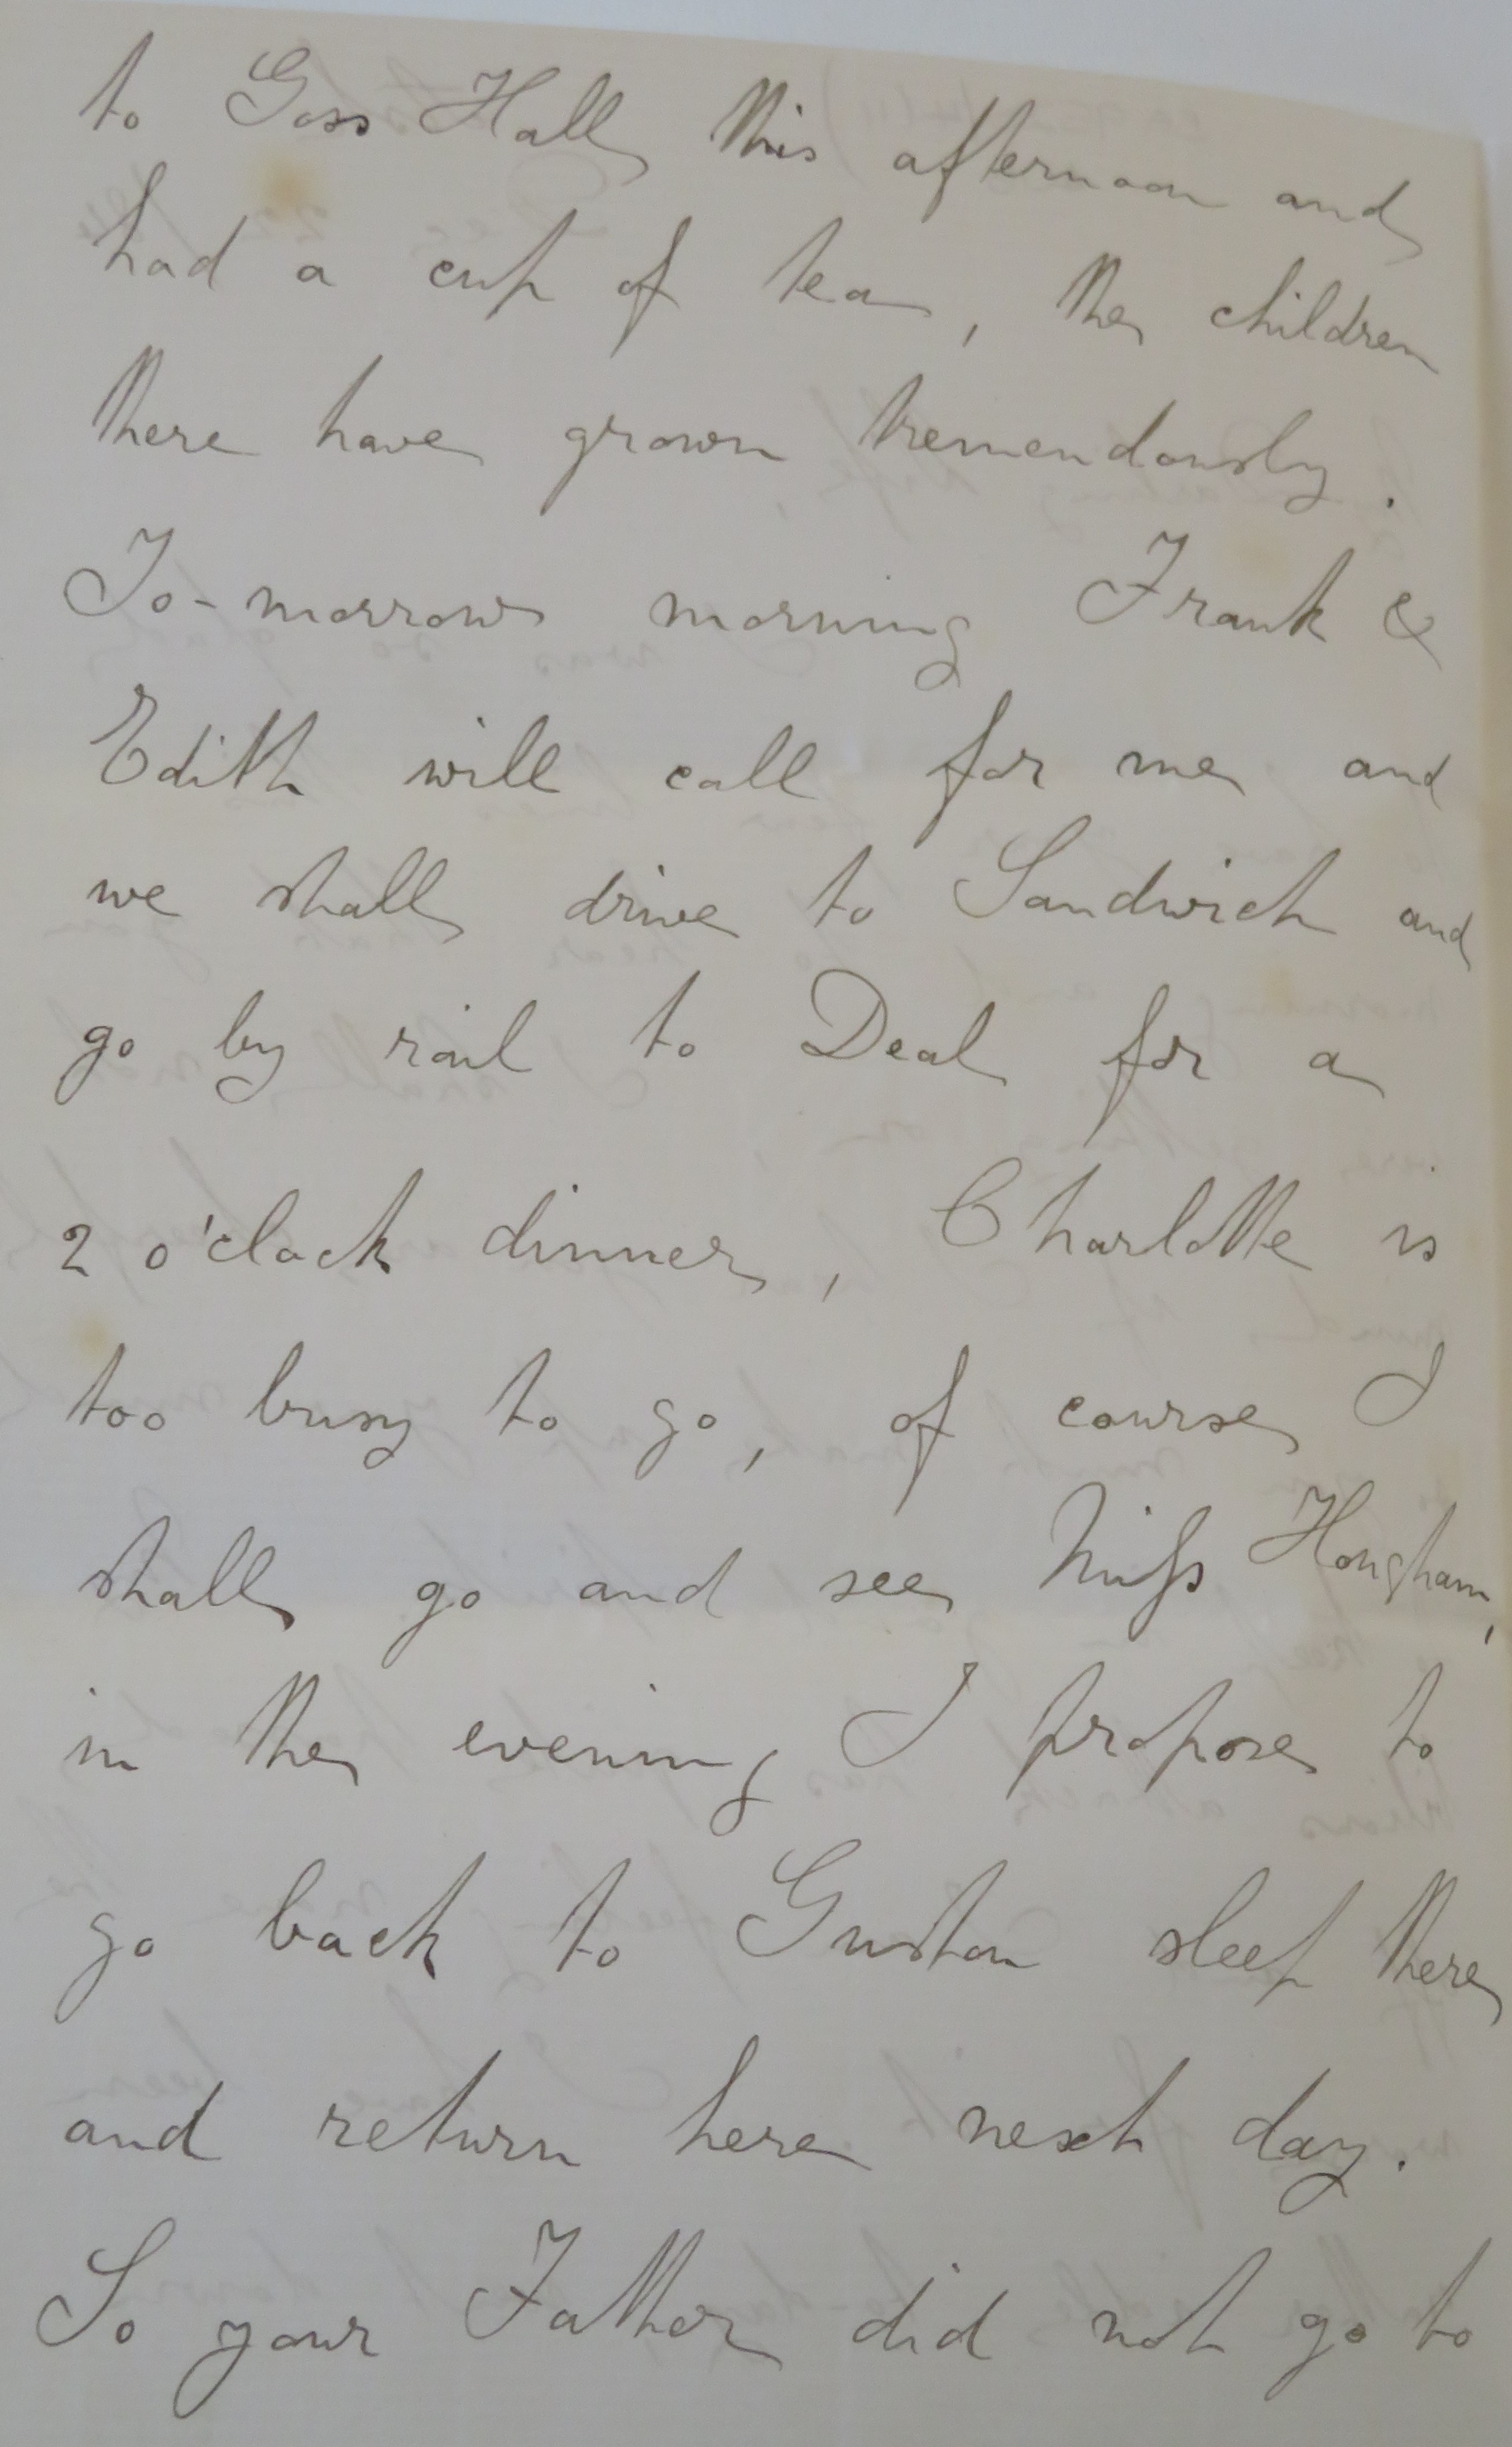 to Goss Hall this afternoon and
had a cup of tea, the children
there have grown tremendously.
To-morrow morning Frank &
Edith will call for me and
we shall drive to Sandwich and
go by rail to Deal for a
2 o'clock dinner, Charlotte is
too busy to go, of course I
shall go and see Miss Hougham,
in the evening I propose to
go back to Guston sleep there
and return here next day.
So your Father did not go to